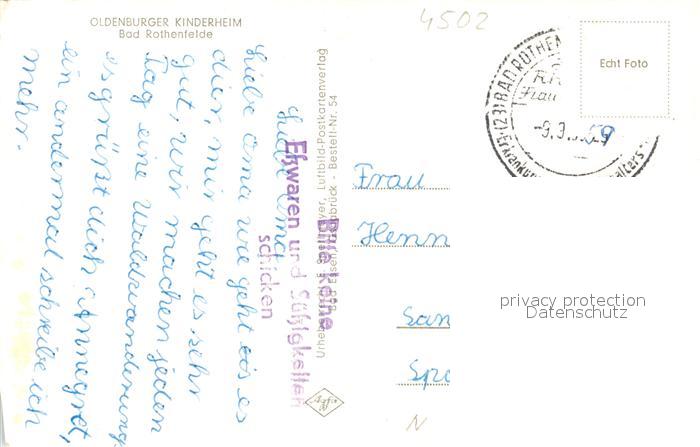 OLDENBURGER KINDERHEIM
Bad Rothenfelde
4502
Liebe Oma
Liebe Oma wie geht es
dir, mir geht es sehr
gut, wir machen jeden
Tag eine Waldwanderung.
es grüßt dich Annegret,
ein andermal schreibe ich
mehr.
Bitte keine
Eßwaren und Süßigkeiten
schicken
Luftbild-Postkartenverlag
Bestell-Nr. 54
Agfa
(23) BAD ROTHEN
Frau
-9.3.
59
Echt Foto
Frau
Henn
San
Spr
N
privacy protection
Datenschutz